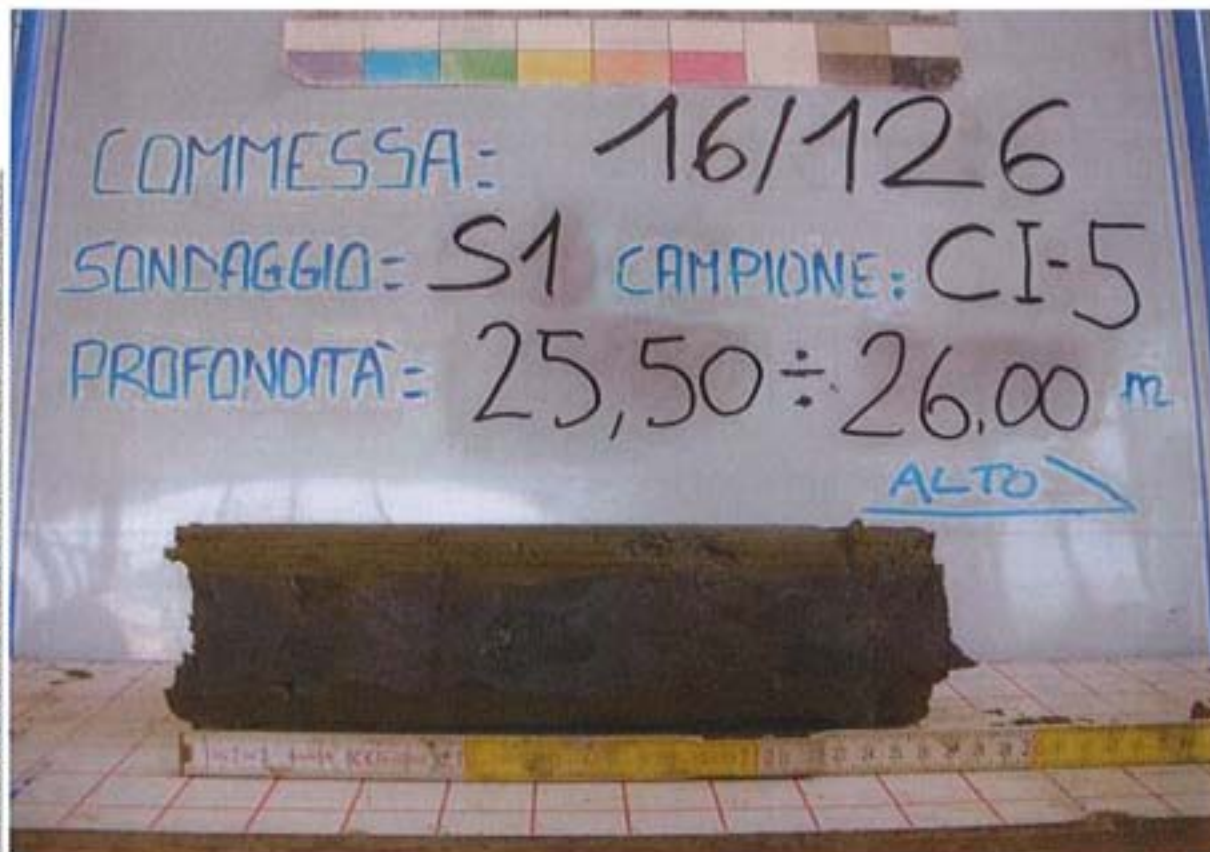 COMMESSA: 16/126
SONDAGGIO: S1 CAMPIONE: CI-5
PROFONDITÀ: 25,50 ÷ 26.00 m
ALTO